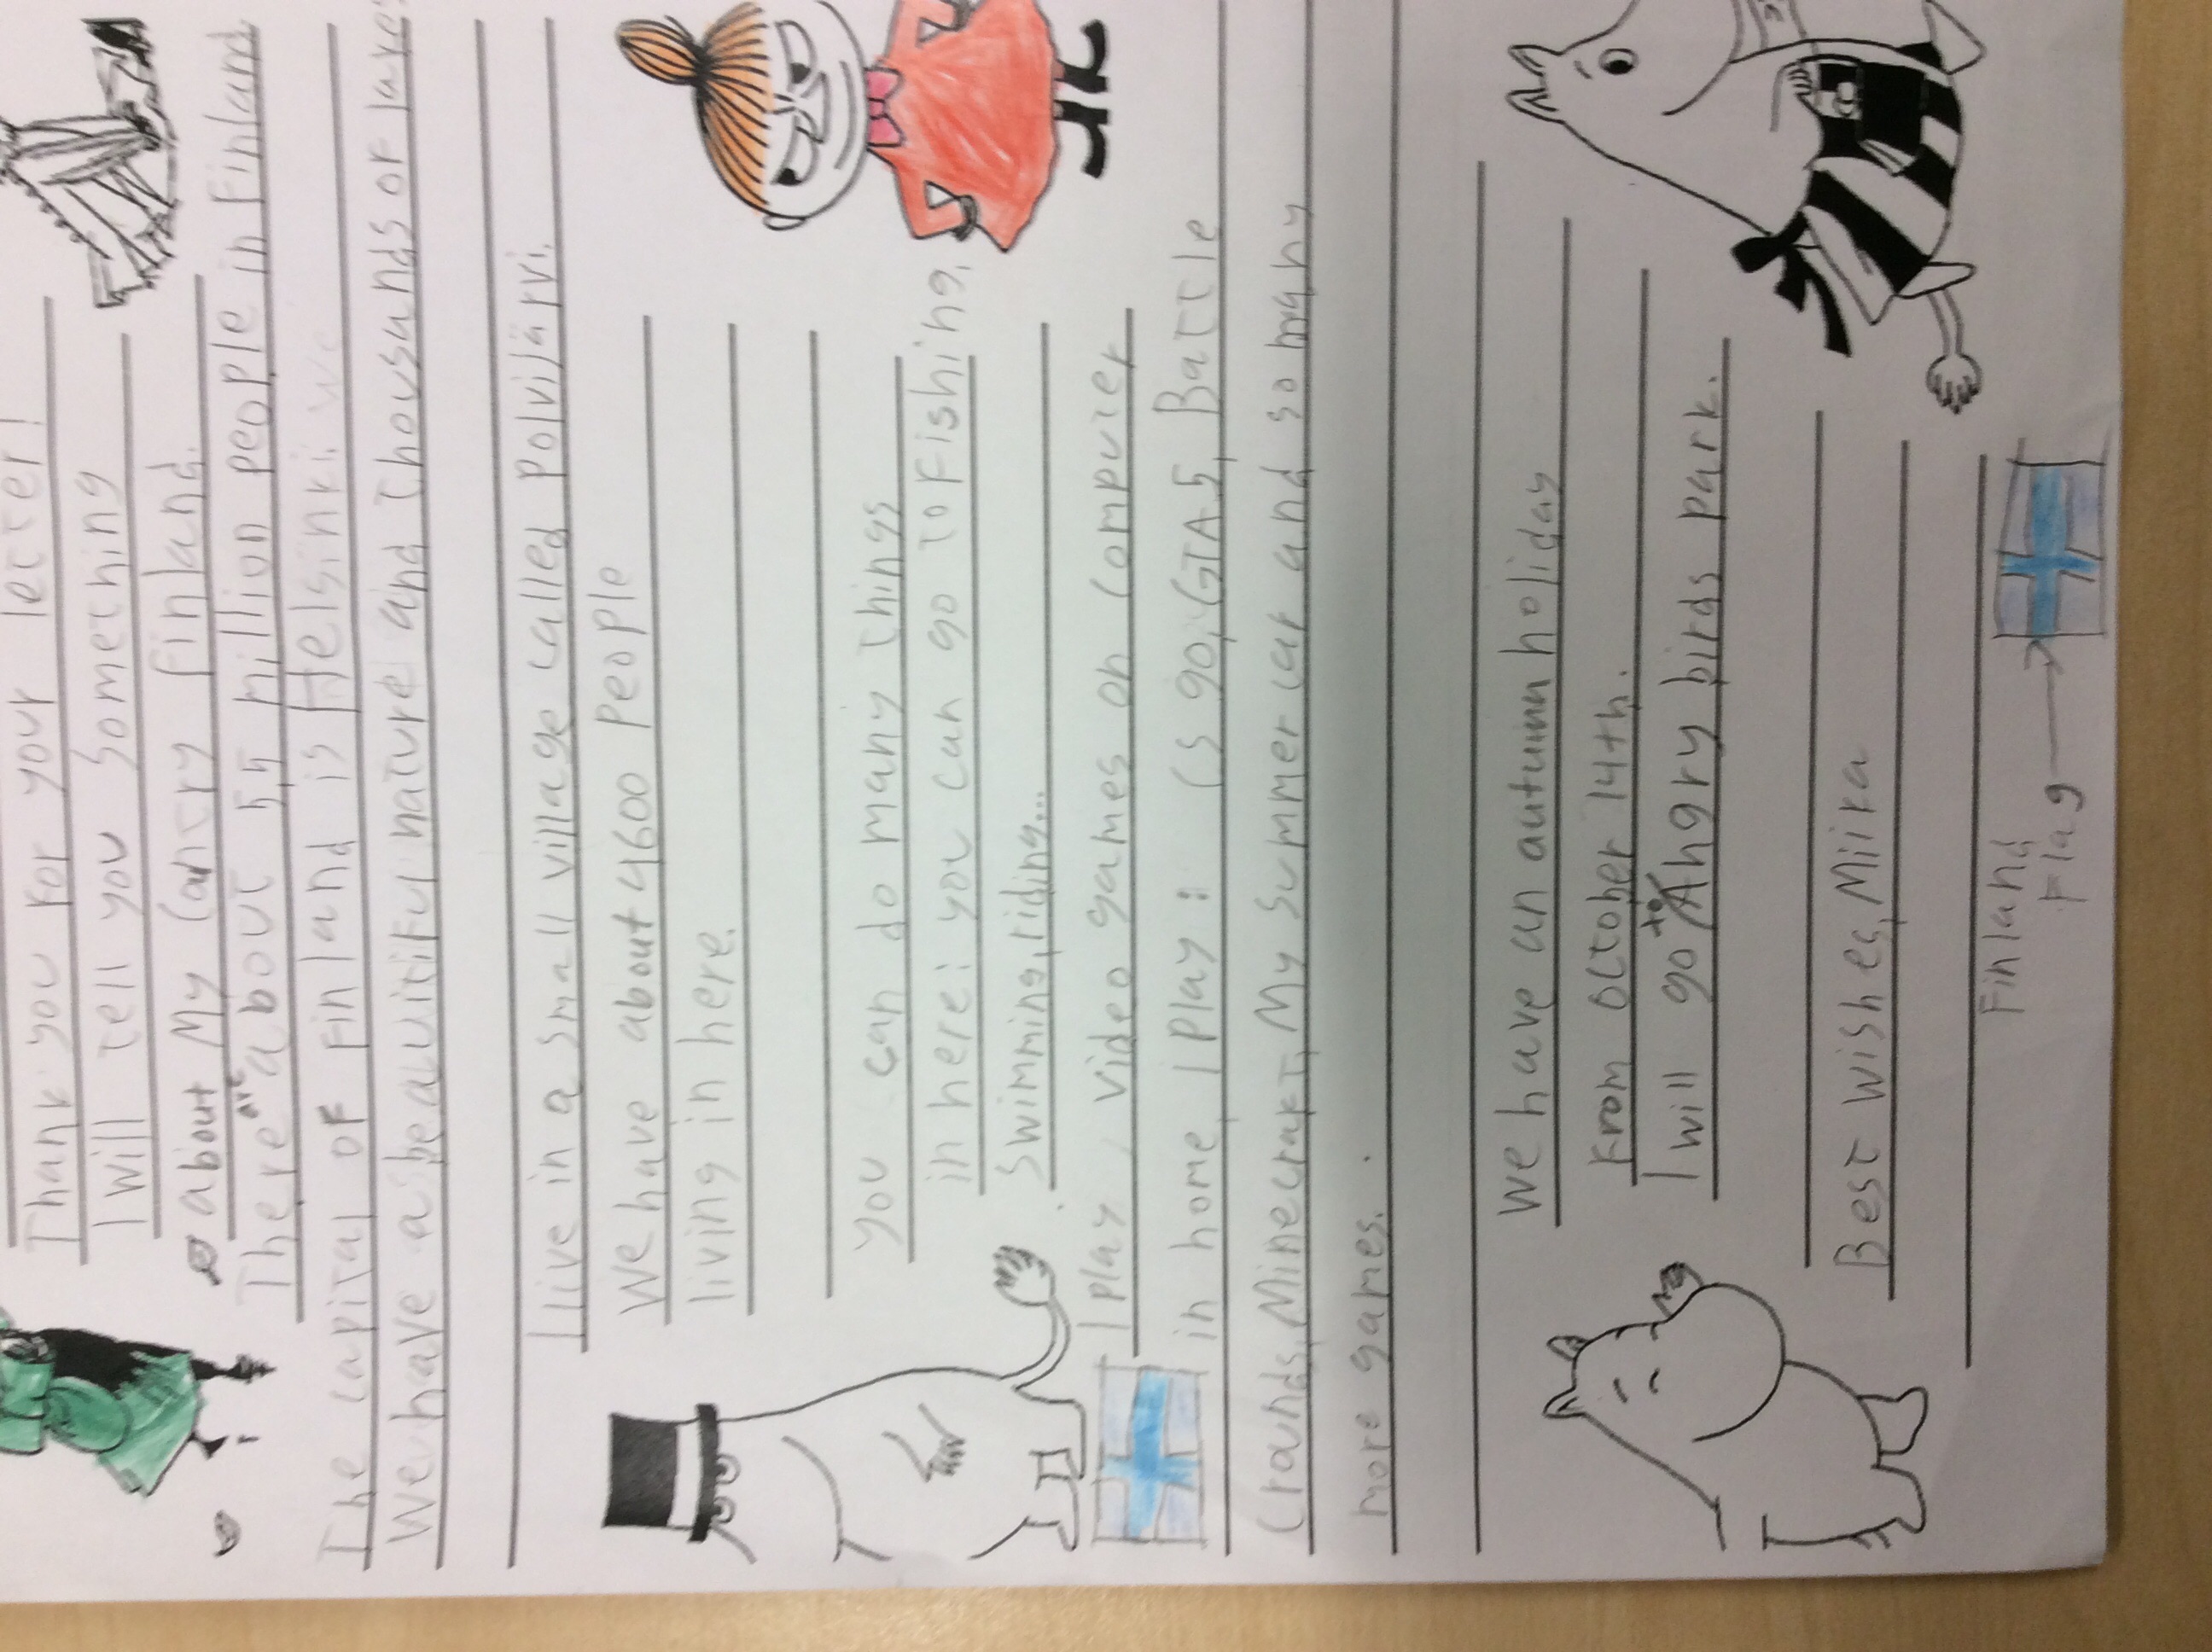 Thank you for your letter!
I will tell you something
about My Contry finland.
There are about 5,5 million people in finland
The capital of Finland is Helsinki. we
We have a beautiful nature and thousands of lakes
I live in a small village called polvijärvi.
We have about 4600 people
living in here.
You can do many things
in here: you can go to fishing,
Swimming, riding...
I play, video games on computer
in home, I play: Cs go, GTA 5, Battle
Crounds, Minecraft, My Summer car and so many
more games.
We have an autumn holiday
from October 14th.
I will go to Angry birds park.
Best wishes, Miira
Finland
Flag